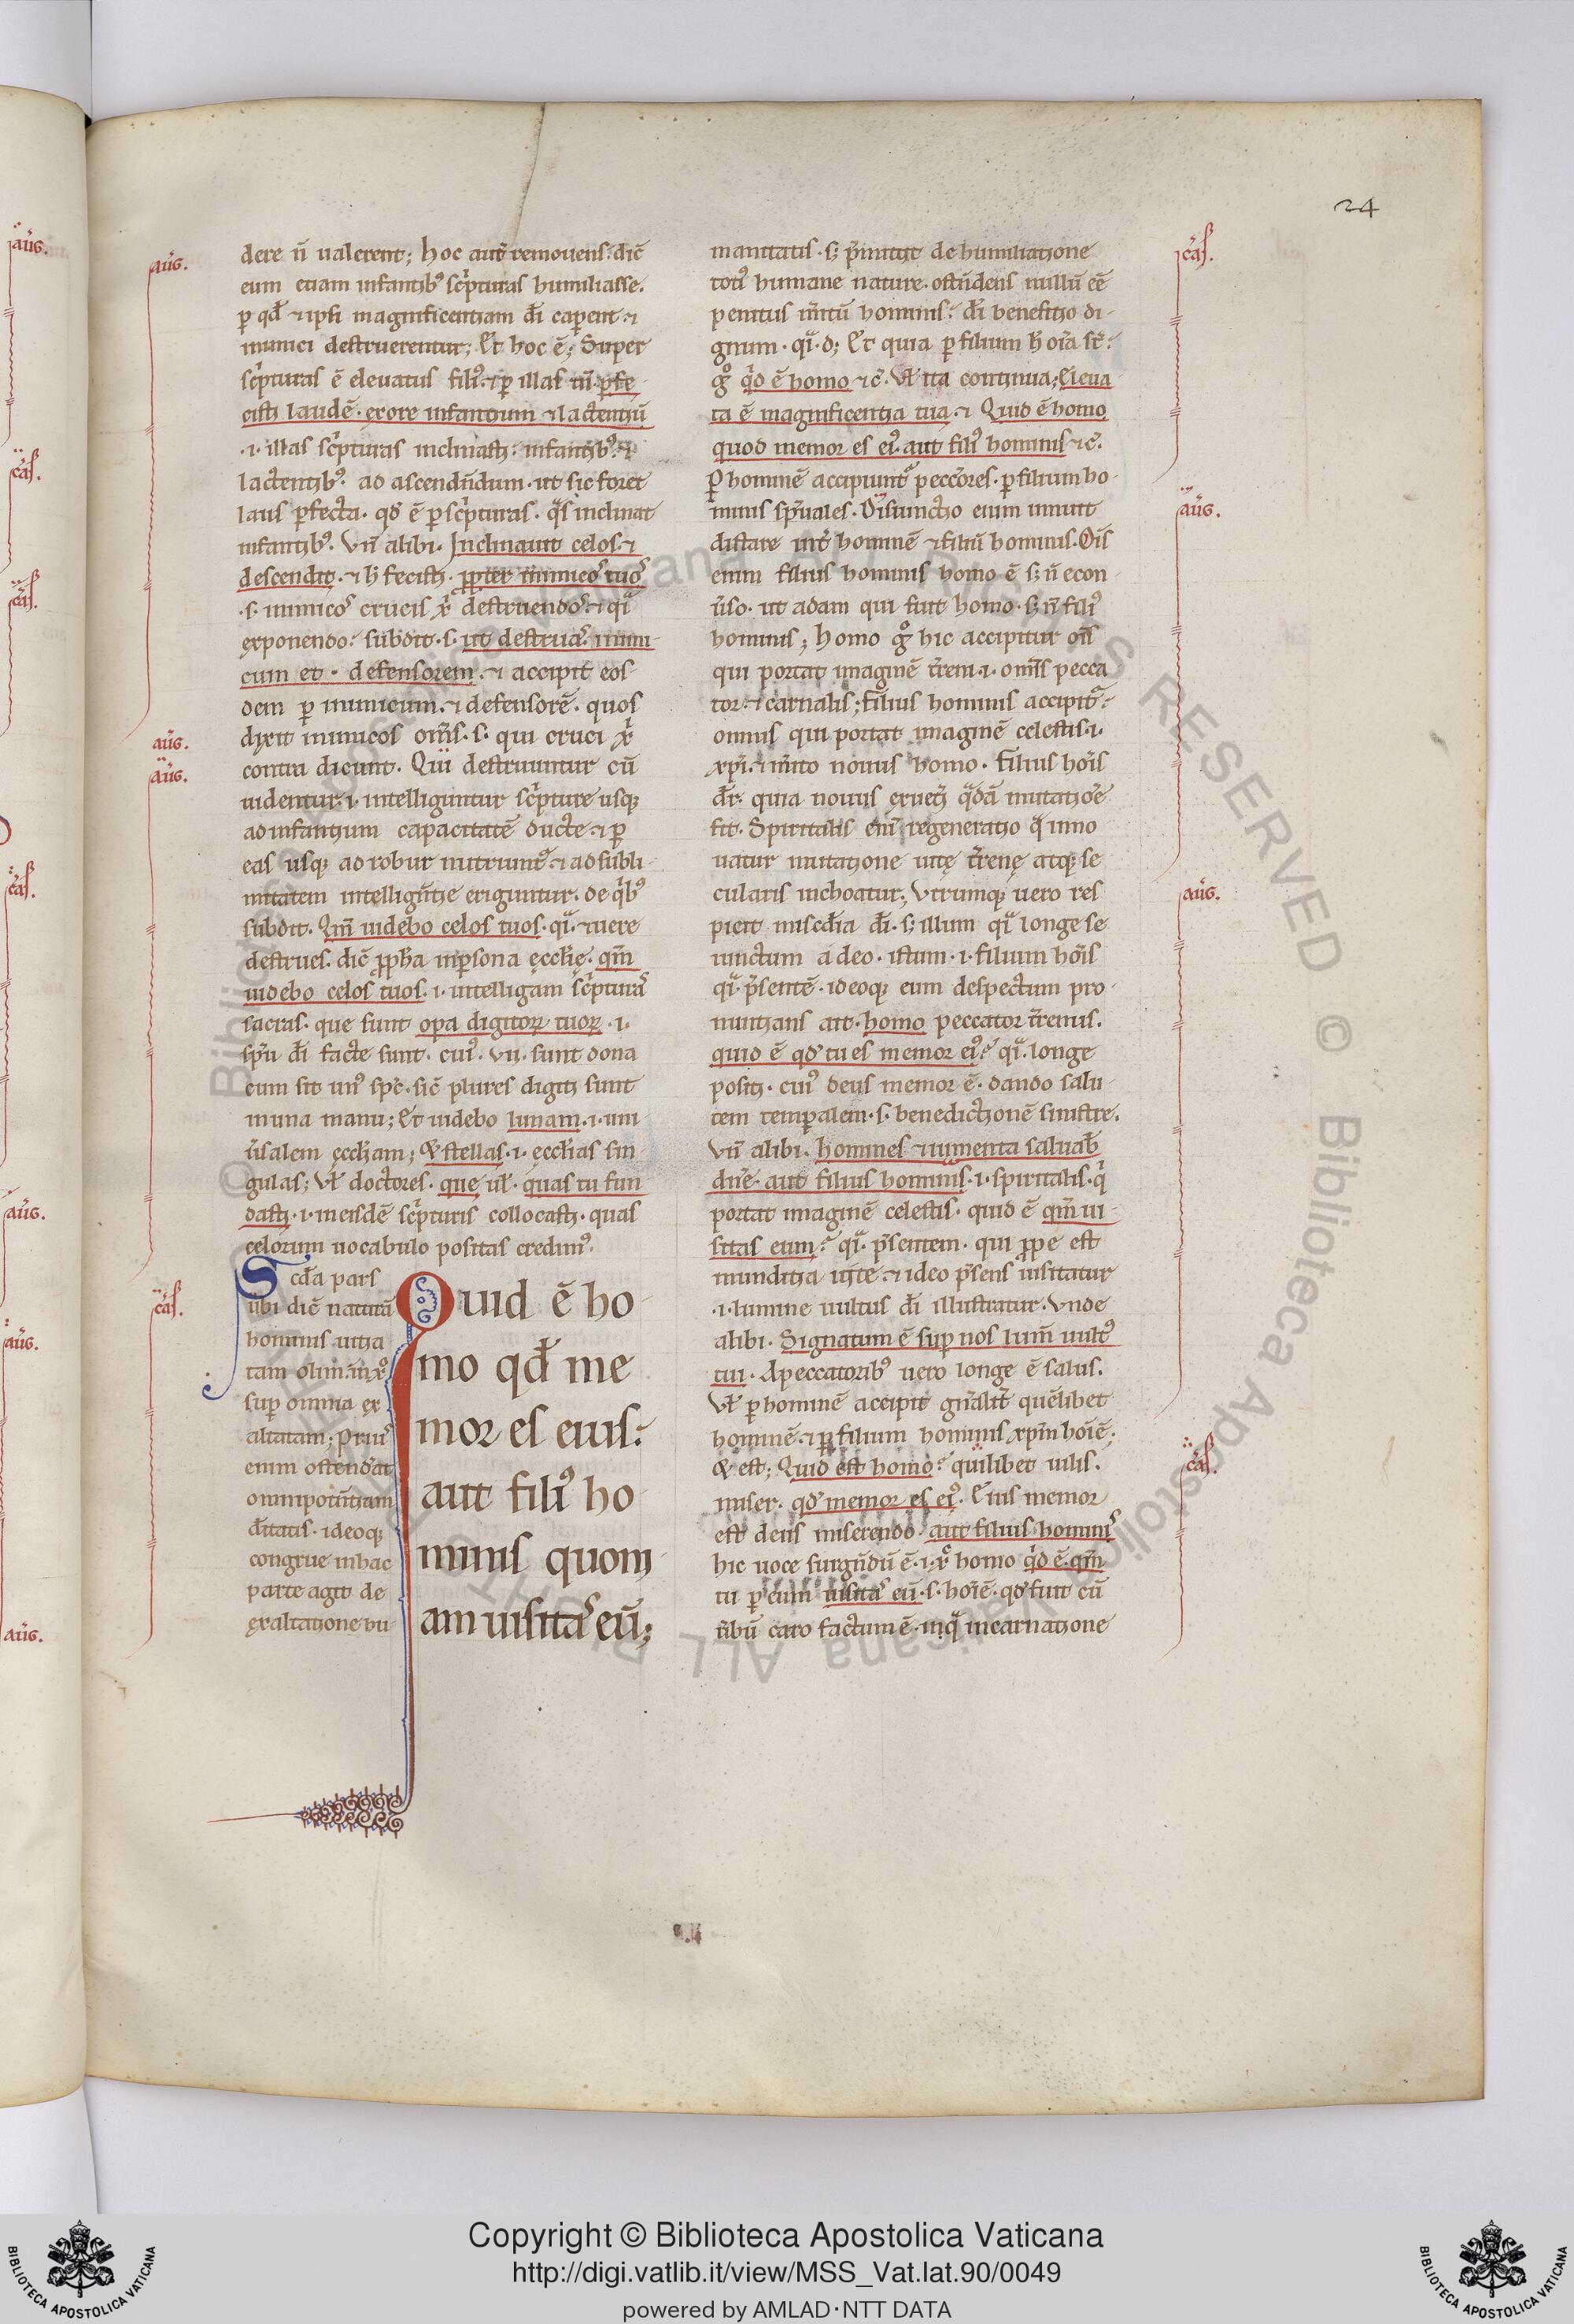 24
aug.
dere n̄ ualerent; hoc aut̄ remouens. dic̄
eum etiam infantibꝰ sc̄pturas humiliasse.
ꝑ qd̄ ⁊ ipsi magnificentiam dī caperent ⁊
inimici destruerentur; Et hoc ē; Super
sc̄pturas ē eleuatus filiꝰ. ⁊ ꝑ illas tu ꝑfe
cisti laudē. ex ore infantium ⁊ lactentiū
.i. illas sc̄pturas inclinasti. infantibꝰ. ⁊
lactentibꝰ. ad ascendēdum. ut sic foret
laus ꝑfecta. qd̄ ē ꝑ sc̄pturas. q̄s inclinat
infantibꝰ. Vn̄ alibi. Inclinauit celos. ⁊
descendit. ⁊ h̄ fecisti. ꝓpter inimicos tuos
.s. inimicos crucis xp̄i destruendos. ⁊ q̄i
exponendo. subdit. s. ut destruas inimi
cum et defensorem. ⁊ accipit eos
dem ꝑ inimicum. ⁊ defensorē. quos
dixit inimicos om̄s. s. qui cruci xp̄i
contra dicunt. Qui destruuntur cū
uidentur .i. intelliguntur sc̄pture usqꝫ
ad infantium capacitatē ducte. ⁊ ꝑ
eas usqꝫ ad robur nutriunt᷑. ⁊ ad subli
mitatem intelligentie eriguntur. de q̄bꝰ
subdit. Qm̄ uidebo celos tuos. q̄i. ⁊ uere
destrues. dic̄ ꝓph̄a in ꝑsona eccl̄ie. qm̄
uidebo celos tuos. i. intelligam sc̄pturas
sacras. que sunt opa digitoꝝ tuoꝝ .i.
sp̄u dī facte sunt. cuiꝰ. vii. sunt dona
cum sit unꝰ sp̄c. sic̄ plures digiti sunt
in una manu; Et uidebo lunam .i. uni
ūsalem eccl̄iam; & stellas .i. eccl̄ias sin
gulas; Vl̄ doctores. que ul̄ quas tu fun
dasti .i. in eisdē sc̄pturis collocasti. quas
celorum uocabulo positas credimꝰ.
aug.
aug.
cas.
Scd̄a pars
ubi dic̄ naturā
hominis uitia
tam olim. in xp̄o
sup omnia ex
altatam. Priuꝰ
enim ostend̄at
omnipotentiam
dītatis. ideoqꝫ
congrue in hac
parte agit de
exaltatione hu
Quid ē ho
mo qd̄ me
mor es eius.
aut filiꝰ ho
minis quoni
am uisitas eū;
manitatis. s; p̄mittit de humiliatione
totiꝰ humane nature. ostēdens nullū eē
penitus m̄itū hominis. dī benefitio di
gnum. q̄i. d; Et quia ꝑ filium h̄ oīa st̄.
g̊ qd̄ ē homo ⁊ c̄. Vl̄ ita continua; Eleua
ta ē magnificentia tua. ⁊ Quid ē homo
quod memor es eiꝰ. aut filiꝰ hominis ⁊ c̄.
Ꝑ hominē accipiunt᷑ peccōres. ꝑ filium ho
minis sp̄uales. Disiunctio enim innuit
distare int̄ hominē ⁊ filiū hominis. Oīs
enim filius hominis homo ē s; n̄ econ
ūso. ut adam qui fuit homo. s; n̄ filiꝰ
hominis; homo g̊ hic accipitur om̄s
qui portat imaginē t̄reni .i. omīs pecca
tor. ⁊ carnalis; filius hominis accipit᷑.
omnis qui portat imaginē celestis .i.
xpi. ⁊ m̄ito nouus homo. Filius hoīs
dr̄. quia nouus exuetiꝰ q̄dā mutatiōe
fit. Spiritalis enī regeneratio q̄ inno
uatur mutatione uite t̄rene atqꝫ se
cularis inchoatur; Vtrumqꝫ uero res
picit misc̄dīa dī. s; illum q̄i longe se
iunctum a deo. istum .i. filium hoīs
q̄i. p̄sentē. ideoqꝫ eum despectum pro
nuntians ait. homo peccator t̄renus.
quid ē qd̄ tu es memor eiꝰ. q̄i. longe
positi. cuiꝰ deus memor ē. dando salu
tem temporalem. s. benedictionē sinistre.
Vn̄ alibi. homines ⁊ iumenta saluab̄
dn̄e. aut filius hominis .i. spiritalis. q̄
portat imaginē celestis. quid ē qm̄ ui
sitas eum. q̄i. p̄sentem. qui ꝓpe est
munditia uite. ⁊ ideo p̄sens uisitatur
.i. lumine uultus dī illustratur. Vnde
alibi. Signatum ē sup nos lum̄ uultꝰ
tui. A peccatoribꝰ uero longe ē salus.
Vl̄ ꝑ hominē accipit gn̄alit̄ quēlibet
hominē. ⁊ ꝑ filium hominis xpm̄ hoīē;
& est; Quid est homo. quilibet uilis.
miser. qd̄ memor es eiꝰ. Eius memor
est deus miserendo. aut filius hominis
hic uoce surgēdū ē .i. xp̄o homo qd̄ ē. qm̄
tu pr̄ eum uisitas eū. s. hoīē. qd̄ fuit cū
ūbū caro factum ē. in q̄ incarnatione
cas.
aug.
aug.
cas.
aug.
cas.
cas.
cas.
aug.
aug.
aug.
© Biblioteca Apostolica Vaticana ALL RIGHTS RESERVED
Copyright © Biblioteca Apostolica Vaticana
http://digi.vatlib.it/view/MSS_Vat.lat.90/0049
powered by AMLAD·NTT DATA
BIBLIOTECA APOSTOLICA VATICANA
BIBLIOTECA APOSTOLICA VATICANA